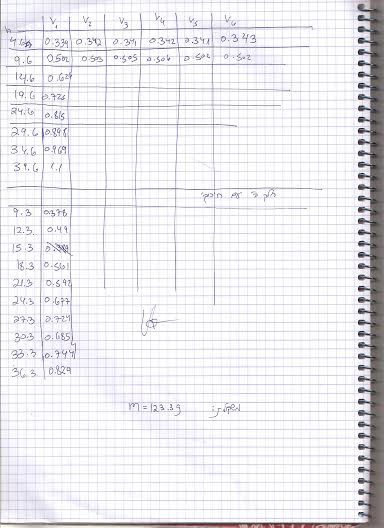 h V₁ V₂ V₃ V₄ V₅ V₆
0.339 0.342 0.341 0.342 0.341 0.343
9.6 0.502 0.503 0.505 0.506 0.502 0.502
14.6 0.629
19.6 0.726
24.6 0.815
29.6 0.898
34.6 0.969
39.6 1.1
9.3 0.378
12.3 0.49
15.3
18.3 0.561
21.3 0.592
24.3 0.677
27.3 0.729
30.3 0.685
33.3 0.744
36.3 0.829
m = 123.3g משקולת: